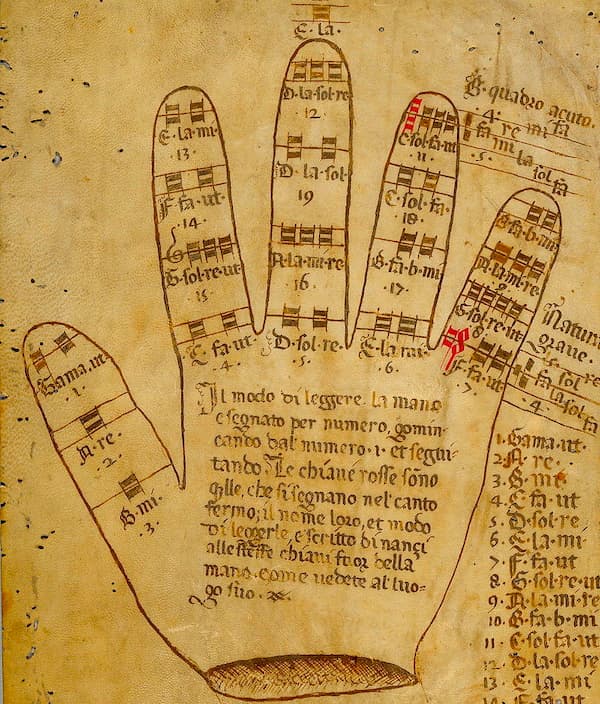 E.la.
E.la.mi
.13.
F.fa.ut
.14.
G.sol.re.ut
.15.
C.fa.ut
.4.
D.la.sol.re
12
D.la.sol.
19
A.la.mi.re
.16.
D.sol.re
.5.
C.sol.fa.ut
.11.
C.sol.fa.
.18.
B.fa.b.mi
.17.
E.la.mi.
.6.
B.fa.b.mi
A.la.mi.re
9
G.sol.re.ut
8
F.fa.ut
.7.
B.quadro acuto.
.4.
fa re mi fa
.5. mi la sol fa
Natura
grave.
sol re
fa la sol fa
.4.
Gama.ut
.1.
A.re.
.2.
B.mi.
.3.
Il modo di leggere la mano
e segnato per numero, comin
cando dal numero .1. et segui
tando. Le chiaui rosse sono
qlle, che si segnano nel canto
fermo; il nome loro, et modo
di leggerle, e scritto dinanzi
alle stesse chiaui fuor della
mano. come vedete al luo-
go suo.
1. Gama.ut.
2. A.re.
3. B.mi
4. C.fa.ut
5. D.sol.re
6. E.la.mi
7. F.fa.ut
8. G.sol.re.ut
9. A.la.mi.re
10. B.fa.b.mi
11. C.sol.fa.ut
12. D.la.sol.re
13. E.la.mi
14. F.fa.ut